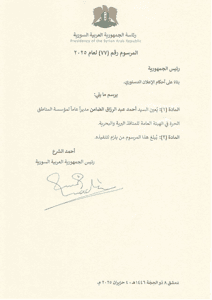 رئاسة الجمهورية العربية السورية
Presidency of the Syrian Arab Republic
المرسوم رقم (٧٧) لعام ٢٠٢٥
رئيس الجمهورية
بناءً على أحكام الإعلان الدستوري.
يرسم ما يلي:
المادة (١): يُعين السيد أحمد عبد الرزاق الضاهر مديراً عاماً لمؤسسة المناطق
الحرة في الهيئة العامة للمنافذ البرية والبحرية.
المادة (٢): يُبلغ هذا المرسوم من يلزم لتنفيذه.
أحمد الشرع
رئيس الجمهورية العربية السورية
دمشق ٨ ذو الحجة ١٤٤٦ هـ - ٤ حزيران ٢٠٢٥ م.